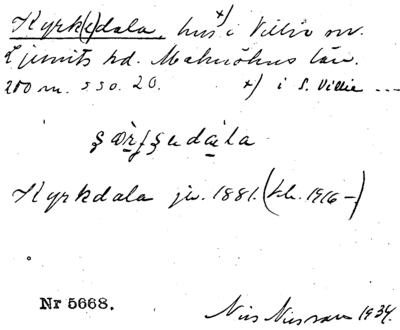 Kyrk(e)dala, hus x) i Villie sn.
Ljunits hd. Malmöhus län.
200 m. SSO. 20. x) i S. Villie ...
Kyrkdala jr. 1881. (kb. 1916-)
Nr 5668.
Nils Nilsson 1934.